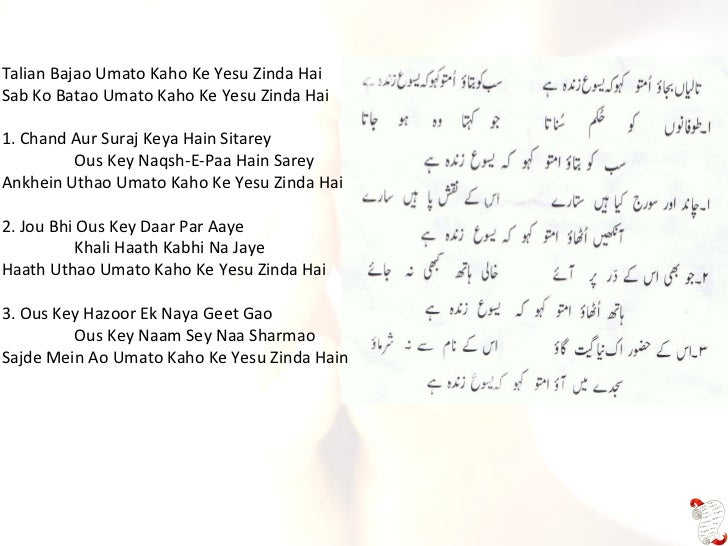 Talian Bajao Umato Kaho Ke Yesu Zinda Hai
Sab Ko Batao Umato Kaho Ke Yesu Zinda Hai
1. Chand Aur Suraj Keya Hain Sitarey
Ous Key Naqsh-E-Paa Hain Sarey
Ankhein Uthao Umato Kaho Ke Yesu Zinda Hai
2. Jou Bhi Ous Key Daar Par Aaye
Khali Haath Kabhi Na Jaye
Haath Uthao Umato Kaho Ke Yesu Zinda Hai
3. Ous Key Hazoor Ek Naya Geet Gao
Ous Key Naam Sey Naa Sharmao
Sajde Mein Ao Umato Kaho Ke Yesu Zinda Hain
تالیاں بجاؤ اُمتو کہو کہ یسوع زندہ ہے سب کو بتاؤ اُمتو کہو کہ یسوع زندہ ہے
۱۔طوفانوں کو حُکم سُناتا جو کہتا وہ ہو جاتا
سب کو بتاؤ امتو کہو کہ یسوع زندہ ہے
۱۔چاند اور سورج کیا ہیں ستارے اس کے نقش پا ہیں سارے
آنکھیں اُٹھاؤ امتو کہو کہ یسوع زندہ ہے
۲۔جو بھی اس کے دَر پر آئے خالی ہاتھ کبھی نہ جائے
ہاتھ اُٹھاؤ امتو کہو کہ یسوع زندہ ہے
۳۔اس کے حضور اک نیا گیت گاؤ اس کے نام سے نہ شرماؤ
سجدے میں آؤ امتو کہو کہ یسوع زندہ ہے